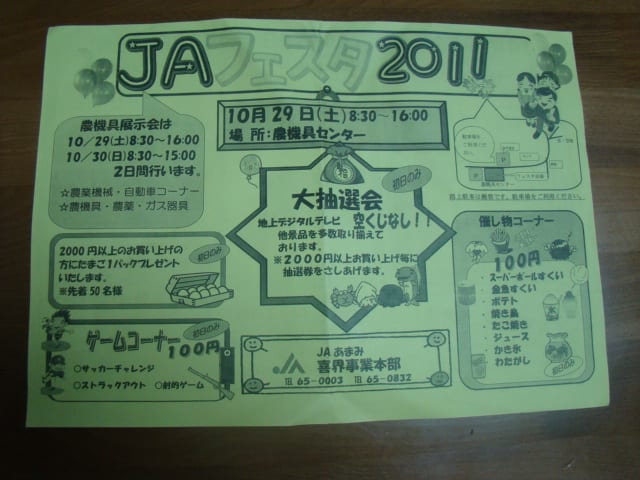 JAフェスタ2011
10月29日(土)8:30～16:00
場所:農機具センター
農機具展示会は
10/29(土)8:30～16:00
10/30(日)8:30～15:00
2日間行います。
☆農業機械・自動車コーナー
☆農機具・農薬・ガス器具
初日のみ
大抽選会
地上デジタルテレビ 空くじなし!!
他景品を多数取り揃えて
おります。
※2000円以上お買い上げ毎に
抽選券をさしあげます。
駐車場を
ご利用ください
P
P
農機具センター
路上駐車は厳禁です。駐車場をご利用ください。
2000円以上のお買い上げの
方にたまご1パックプレゼント
いたします。
※先着50名様
初日のみ
催し物コーナー
100円
・スーパーボールすくい
・金魚すくい
・ポテト
・焼き鳥
・たこ焼き
・ジュース
・かき氷
・わたがし
初日のみ
ゲームコーナー
初日のみ
100円
○サッカーチャレンジ
○ストラックアウト ○射的ゲーム
JA
JAあまみ
喜界事業本部
TEL 65-0003 TEL 65-0832